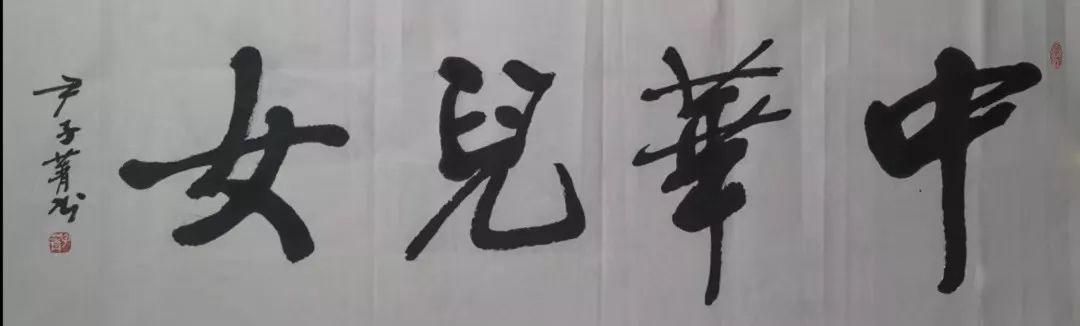 中華兒女
尹子菁书